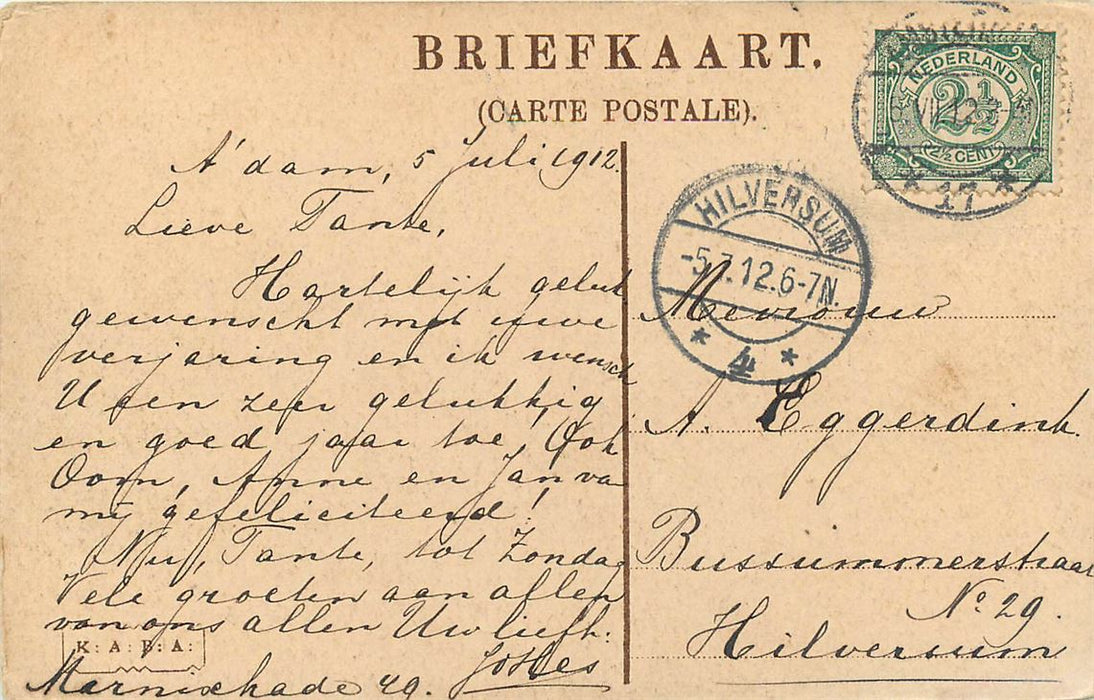 BRIEFKAART.
(CARTE POSTALE).
NEDERLAND
2½
2½ CENT
VII 12
17
HILVERSUM
-5.7.12.6-7N.
4
A'dam, 5 Juli 1912.
Lieve Tante,
Hartelijk geluk
gewenscht met uwe
verjaring en ik wensch
U een zeer gelukkig
en goed jaar toe, Ook
Oom, Anne en Jan van
mij gefeliciteerd!
Nu, Tante, tot Zondag
Vele groeten aan allen
van ons allen Uw liefh:
K: A: B: A:
Marnixkade 49.
Mevrouw
A. Eggerdink.
Bussummerstraat
No. 29.
Hilversum